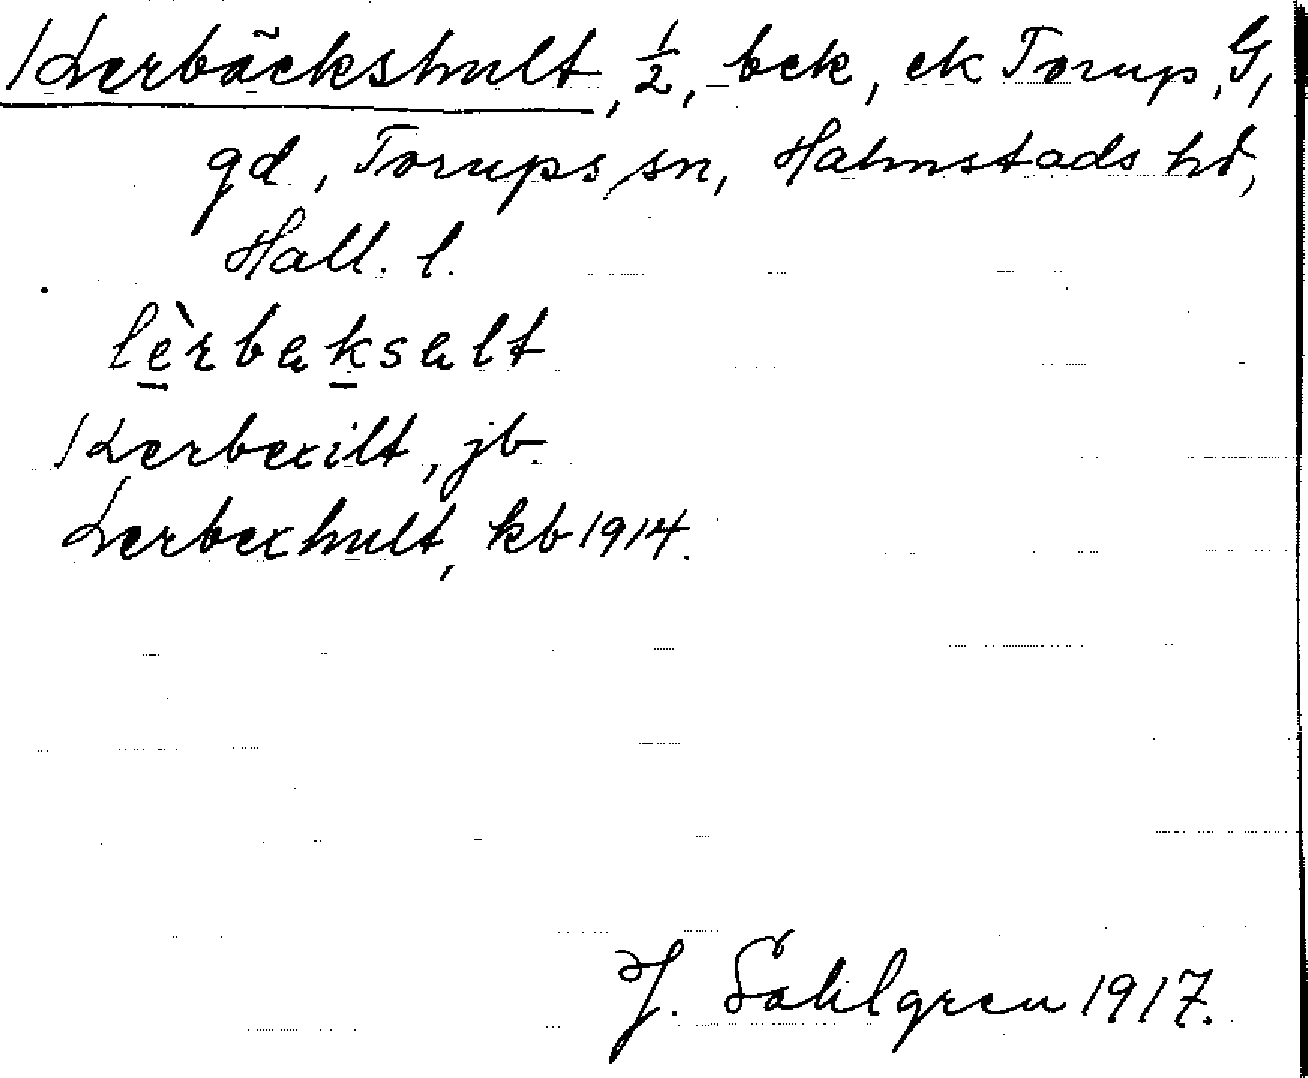 Lerbäckshult, ½, bck, ck Torup, G,
gd, Torups sn, Halmstads hd,
Hall. l.
lèrbaksalt
Lerbexilt, jb.
Lerbexhult, kb 1914.
J. Sahlgren 1917.